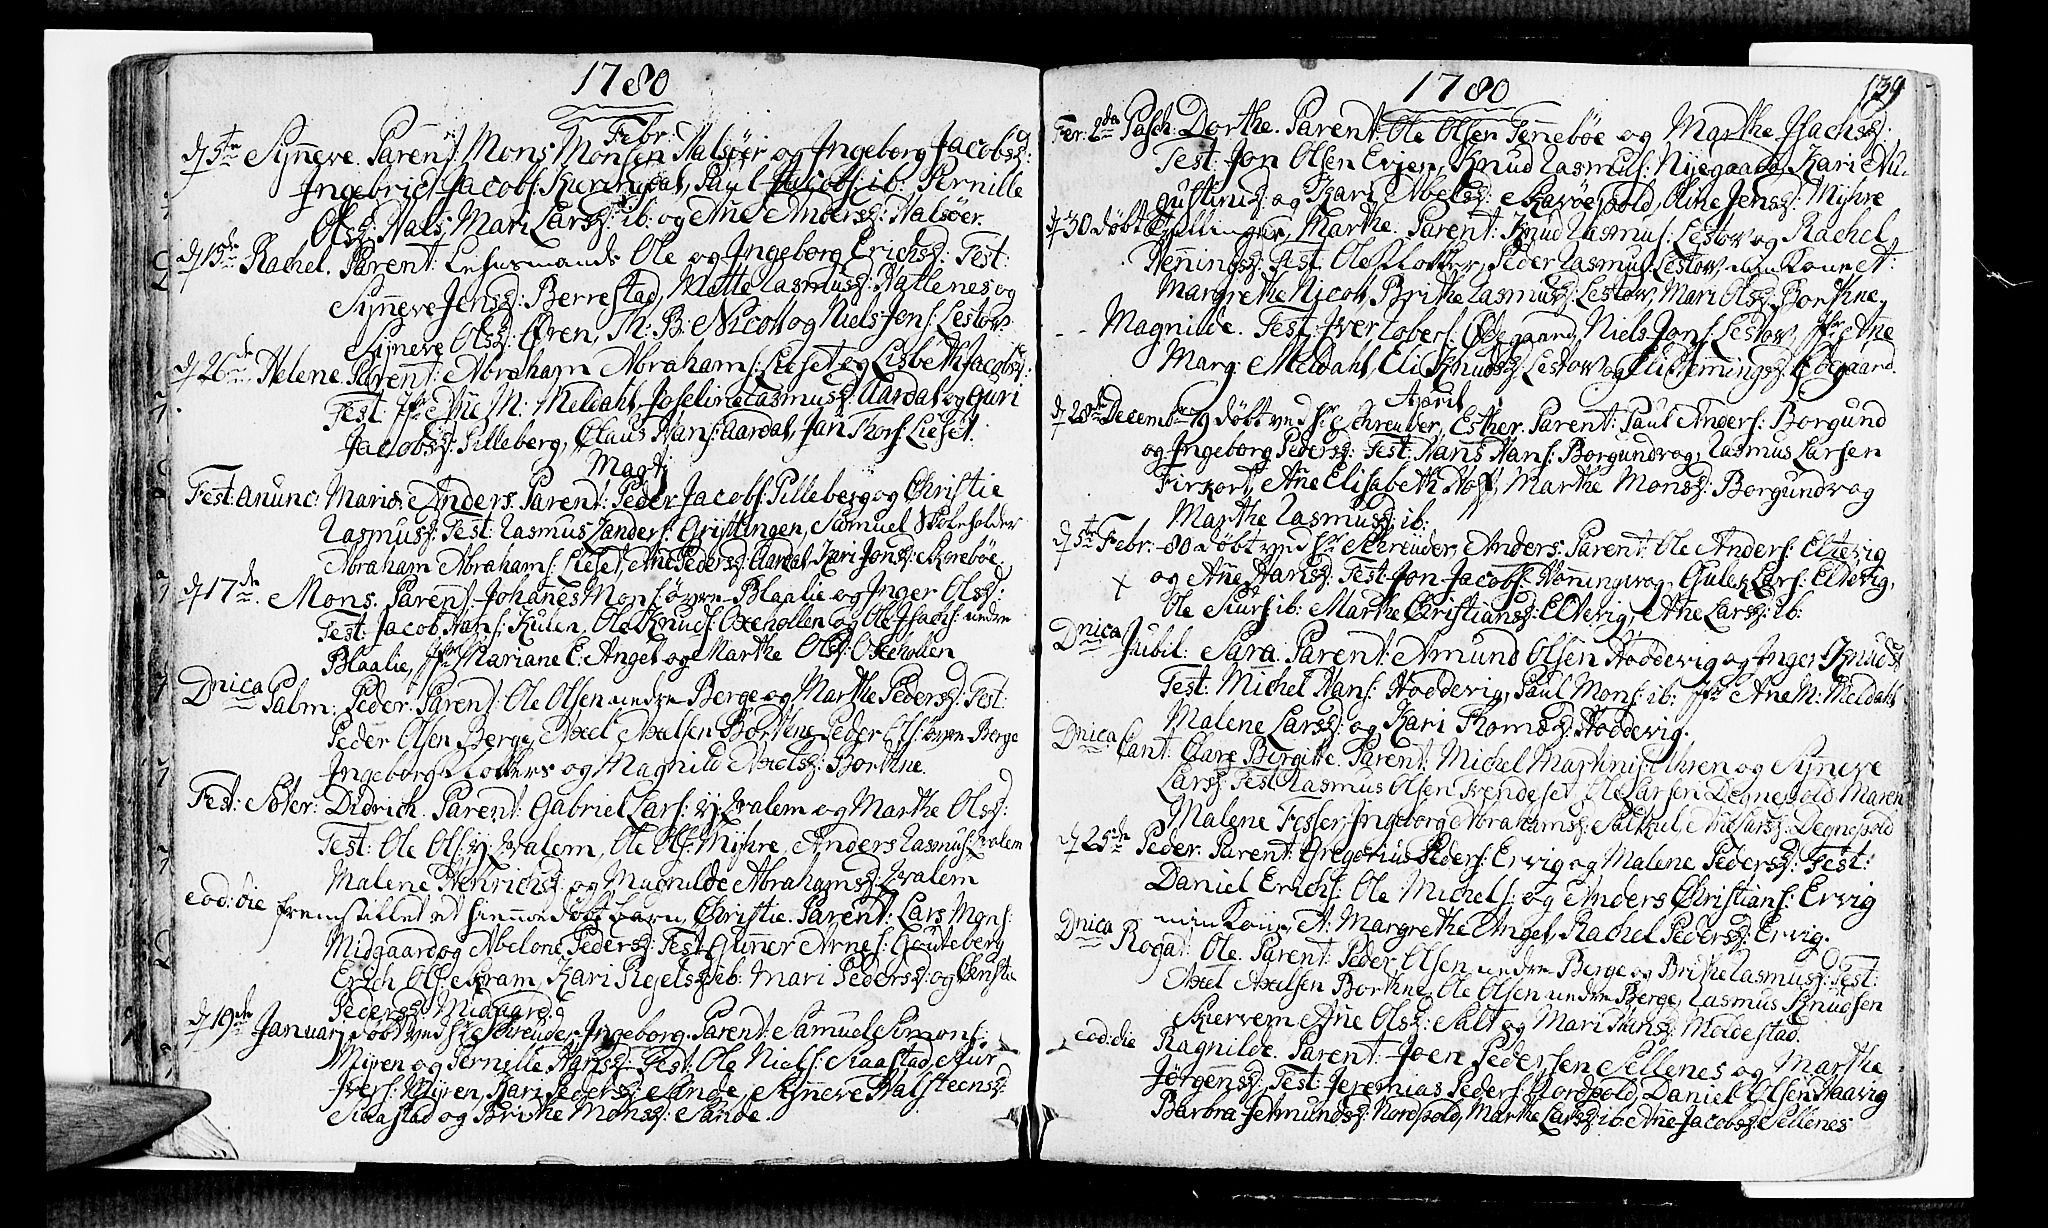 1780
Febr:
d 5te Synneve. Parent: Mons Monsen Halsöer og Ingeborg Jacobsd:
Ingebrict Jacobs: Paul Jacobs: ib: Pernille
Olsd: Hals, Mari Larsd: ib: og Ane Andersd: Halsöer.
d 13de Rachel. Parent: Lehnsmands Ole og Ingeborg Ericksd: Test:
Synneve Jensd: Berrestad, Mette Rasmusd: Hattenes og
Synneve Olsd: Ören, Th: B: Nicoll og Niels Jons: Lestow
d 26de Helene. Parent: Abraham Abrahams: Lieset og Lisbeth Jacobsd:
Test: Jfr Ane M: Meldahl, Joseline Rasmusd: Aardal og Guri
Jacobsd: Pilleberg, Claus Hans: Aardal, Jan Thors: Lieset.
Martj
Fest: Anunc: Maria Anders. Parent: Peder Jacobs: Pilleberg og Christie
Rasmusd: Test: Rasmus Randers: Gryttingen, Samuel Skoleholder
Abraham Abrahams: Lieset, Ane Pedersd: Aardal, Kari Jonsd: Skoreböe
d 17de. Mons. Parent: Johanes Mons: övre Blaalie og Inger Olsd:
Test: Jacob Hans: Kulen, Ole Knuds: Oxehollen og Ole Isachs: nedre
Blaalie, Jfr Mariane E: Angel og Marthe Olsd: Oxehollen
Dnica Palm: Peder. Parent: Ole Olsen nedre Berge og Marthe Pedersd: Test:
Peder Olsen Berge, Axel Axelsen Borthne, Peder Ols: övre Berge
Ingeborg Klokkers og Magnild Axelsd: Borthne.
Fest: Soter: Didrich. Parent: Gabriel Lars: y: Hvalem og Marthe Olsd:
Test: Ole Ols: y: Hvalem, Ole Ols: Myhre, Anders Rasmus: Hvalem
Malene Henrichsd: og Magnilde Abrahamsd: Hvalem
eod: die fremstillet et hiemmedöbt barn, Christie. Parent: Lars Mons:
Midgaard og Abelone Pedersd: Test: Guner Arnes: Gouteberg
Erich Ols: Skram, Kari Siegelsd: ib: Mari Pedersd: og Christie
Pedersd: Midgaard
d 19de Januarj döbt ved Hr Schreuder, Ingeborg. Parent: Samuel Simons:
Myren og Pernille Hansd: Test: Ole Niels: Raastad, Siur
Ivers: Myren, Kari Pedersd: Sande, Synneve Halsteensd:
Raastad og Brithe Monsd: Sande.
1780
139
Fer: 2da Pasch: Dorthe. Parent: Ole Olsen Tenneböe og Marthe Isachsd:
Test: Jon Olsen Evjen, Knud Rasmus: Nyegaard, Kari Au-
gustinsd: og Kari Abelsd: Skaröepold, Oline Jensd: Myhre
d 30 döbt Tvillinger, Marthe. Parent: Knud Rasmus: Lestow og Rachel
Henningsd: Test: Ole Klokker, Peder Rasmus: Lestow, min Kone A:
Margrethe Nicoll, Brithe Rasmusd: Lestow, Mari Olsd: Borthne,
Magnilde. Test: Iver Robers: Ödegaard, Niels Jons: Lestow, Jfr Ane
Marg: Meldahl, Eli Knudsd: Lestow og Eli Flemingsd: Ödegaard.
April
d 28de Decembr 79 döbt ved Hr Schreuder, Esther. Parent: Paul Anders: Borgund
og Ingeborg Pedersd: Test: Hans Hans: Borgundvog, Rasmus Larsen
Firkort, Ane Elisabeth Hoff, Marthe Monsd: Borgundvog
Marthe Rasmusd: ib:
d 5te Febr: 80 döbt ved Hr Schreuder, Anders. Parent: Ole Anders: Eltevig
og Ane Hansd: Test: Jon Jacobs: Honningsvog, Gulek Lars: Eltevig,
Ole Siurs: ib: Marthe Christiansd: Eltevig, Ane Larsd: ib:
Dnica Jubil: Sara. Parent: Amund Olsen Hoddevig og Inger Knudsd:
Test: Michel Hans: Hoddevig, Paul Mons: ib: Jfr Ane M: Meldahl
Malene Larsd: og Kari Thomsd: Hoddevig.
Dnica Cant: Clare Birgitte. Parent: Michel Martinus: Ahren og Synneve
Larsd: Test: Rasmus Olsen Trendeset, Ole Larsen Degnepold, Maren
Malene Fesser, Ingeborg Abrahamsd: Ane Larsd: Degnepold
d 25de Peder. Parent: Gregorius Peders: Ervig og Malene Pedersd: Test:
Daniel Erichs: Ole Michels: og Anders Christians: Ervig
min Kone A: Margrethe Angel, Rachel Pedersd: Ervig.
Dnica Rogat: Ole. Parent: Peder Olsen nedre Berge og Brithe Rasmusd: Test:
Axel Axelsen Borthne, Ole Olsen nedre Berge, Rasmus Knudsen
Skiervem, Ane Olsd: Salt og Mari Hansd: Moldestad.
eod: die Ragnilde. Parent: Joen Pedersen Sellenes og Marthe
Jörgensd: Test: Jeremias Peders: Nordpold, Daniel Olsen Haavig
Barbra Amundsd: Nordpold, Marthe Larsd: ib: Ane Jacobsd: Sellenes